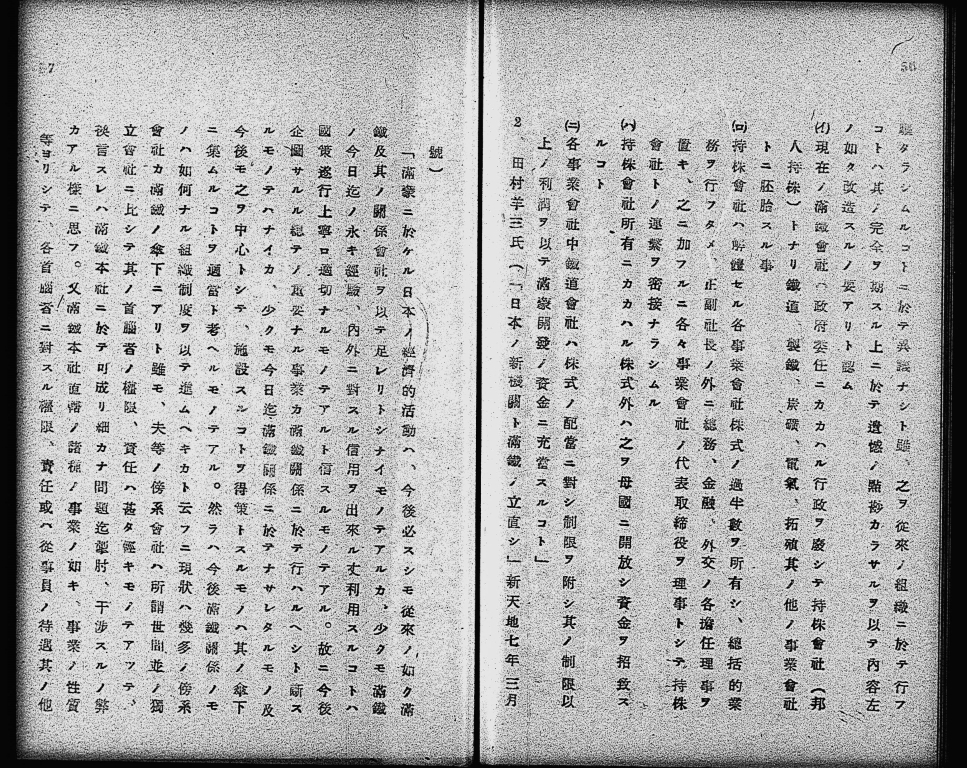 56
タラシムルコトニ於テ異議ナシト雖、之ヲ從來ノ組織ニ於テ行フ
コトハ其ノ完全ヲ期スル上ニ於テ遺憾ノ點尠カラサルヲ以テ內容左
ノ如タ改造スルノ要アリト認ム
(イ)現在ノ滿鐵會社ハ政府委任ニカカハル行政ヲ廢シテ持株會社(邦
人持株)トナリ鐵道、製鐵、炭礦、電氣、拓殖其ノ他ノ事業會社
トニ胚胎スル事
(ロ)持株會社ハ解體セル各事業會社株式ノ過半數ヲ所有シ、總括的業
務ヲ行フタメ、正副社長ノ外ニ總務、金融、外交ノ各擔任理事ヲ
置キ、之ニ加フルニ各々事業會社ノ代表取締役ヲ理事トシテ、持株
會社トノ連繫ヲ密接ナラシムル
(ハ)持株會社所有ニカカハル株式外ハ之ヲ母國ニ開放シ資金ヲ招致ス
ルコト
(ニ)各事業會社中鐵道會社ハ株式ノ配當ニ對シ制限ヲ附シ其ノ制限以
上ノ利潤ヲ以テ滿蒙開發ノ資金ニ充當スルコト」
2、田村羊三氏(「日本ノ新機關ト滿鐵ノ立直シ」新天地七年三月
57
號)
「滿蒙ニ於ケル日本ノ經濟的活動ハ、今後必スシモ從來ノ如ク滿
鐵及其ノ關係會社ヲ以テ足レリトシナイモノテアルカ、少クモ滿鐵
ノ今日迄ノ永キ經驗、內外ニ對スル信用ヲ出來ル丈利用スルコトハ
國策遂行上寧ロ適切ナルモノテアルト信スルモノテアル。故ニ今後
企圖サルル總テノ重要ナル事業カ滿鐵關係ニ於テ行ハルヘシト斷ス
ルモノテハナイカ、少クモ今日迄滿鐵關係ニ於テナサレタルモノ及
今後モ之ヲ中心トシテ、施設スルコトヲ得策トスルモノハ其ノ傘下
ニ集ムルコトヲ適當ト考ヘルモノテアル。然ラハ今後滿鐵關係ノモ
ノハ如何ナル組織制度ヲ以テ進ムヘキカト云フニ現狀ハ幾多ノ傍系
會社カ滿鐵ノ傘下ニアリト雖モ、夫等ノ傍系會社ハ所謂世間並ノ獨
立會社ニ比シテ其ノ首腦者ノ權限、責任ハ甚タ輕キモノテアツテ、
換言スレハ滿鐵本社ニ於テ可成リ細カナ問題迄掣肘、干涉スルノ弊
カアル樣ニ思フ。又滿鐵本社直轄ノ諸種ノ事業ノ如キ、事業ノ性質
等ヨリシテ、各首腦者ニ對スル權限、責任或ハ從事員ノ待遇其ノ他